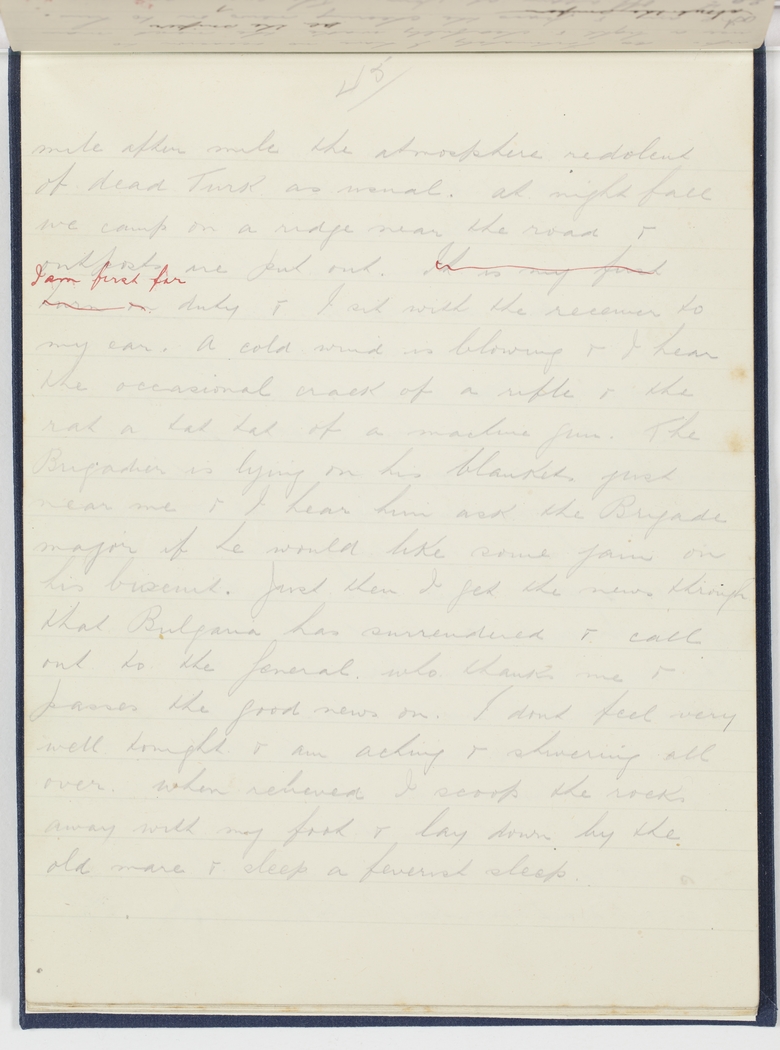 45
mile after mile the atmosphere redolent
of dead Turk as usual. at night fall
we camp on a ridge near the road &
outposts are put out. It is my first
I am first for
turn on duty & I sit with the receiver to
my ear. A cold wind is blowing & I hear
the occasional crack of a rifle & the
rat a tat tat of a machine gun. The
Brigadier is lying on his blankets just
near me & I hear him ask the Brigade
major if he would like some jam on
his biscuit. Just then I get the news through
that Bulgaria has surrendered & call
out to the General. who thanks me &
passes the good news on. I dont feel very
well tonight & am aching & shivering all
over. when relieved I scoop the rocks
away with my foot & lay down by the
old mare & sleep a feverish sleep.